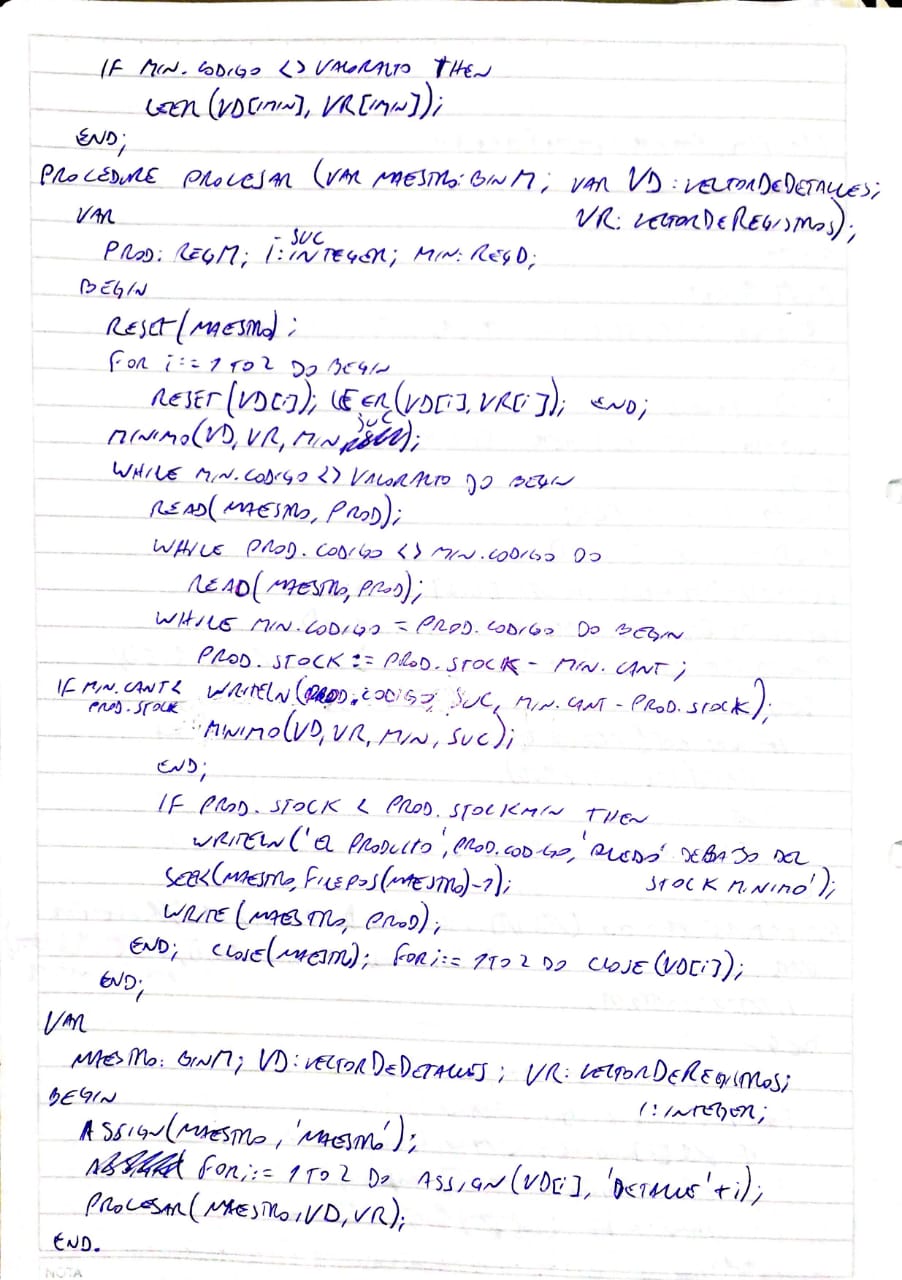 IF MIN.CODIGO <> VALORALTO THEN
LEER(VD[IMIN], VR[IMIN]);
END;
PROCEDURE PROCESAR (VAR MAESTRO: BINM; VAR VD: VECTORDEDETALLES;
VR: VECTORDEREGISTROS);
VAR
SUC
PROD: REGM; I: INTEGER; MIN: REGD;
BEGIN
RESET(MAESTRO);
FOR i:= 1 TO 2 DO BEGIN
RESET(VD[i]); LEER(VD[i], VR[i]); END;
SUC
MINIMO(VD, VR, MIN, );
WHILE MIN.CODIGO <> VALORALTO DO BEGIN
READ(MAESTRO, PROD);
WHILE PROD.CODIGO <> MIN.CODIGO DO
READ(MAESTRO, PROD);
WHILE MIN.CODIGO = PROD.CODIGO DO BEGIN
PROD.STOCK := PROD.STOCK - MIN.CANT;
IF MIN.CANT < WRITELN(PROD.CODIGO, SUC, MIN.CANT - PROD.STOCK);
PROD.STOCK
MINIMO(VD, VR, MIN, SUC);
END;
IF PROD.STOCK < PROD.STOCKMIN THEN
WRITELN('EL PRODUCTO', PROD.CODIGO, 'QUEDÓ DEBAJO DEL
SEEK(MAESTRO, FILEPOS(MAESTRO)-1); STOCK MINIMO');
WRITE(MAESTRO, PROD);
END; CLOSE(MAESTRO); FOR i:= 1 TO 2 DO CLOSE(VD[i]);
END;
VAR
MAESTRO: BINM; VD: VECTORDEDETALLES; VR: VECTORDEREGISTROS;
I: INTEGER;
BEGIN
ASSIGN(MAESTRO, 'MAESTRO');
FOR i:= 1 TO 2 DO ASSIGN(VD[i], 'DETALLE'+i);
PROCESAR(MAESTRO, VD, VR);
END.
NOTA